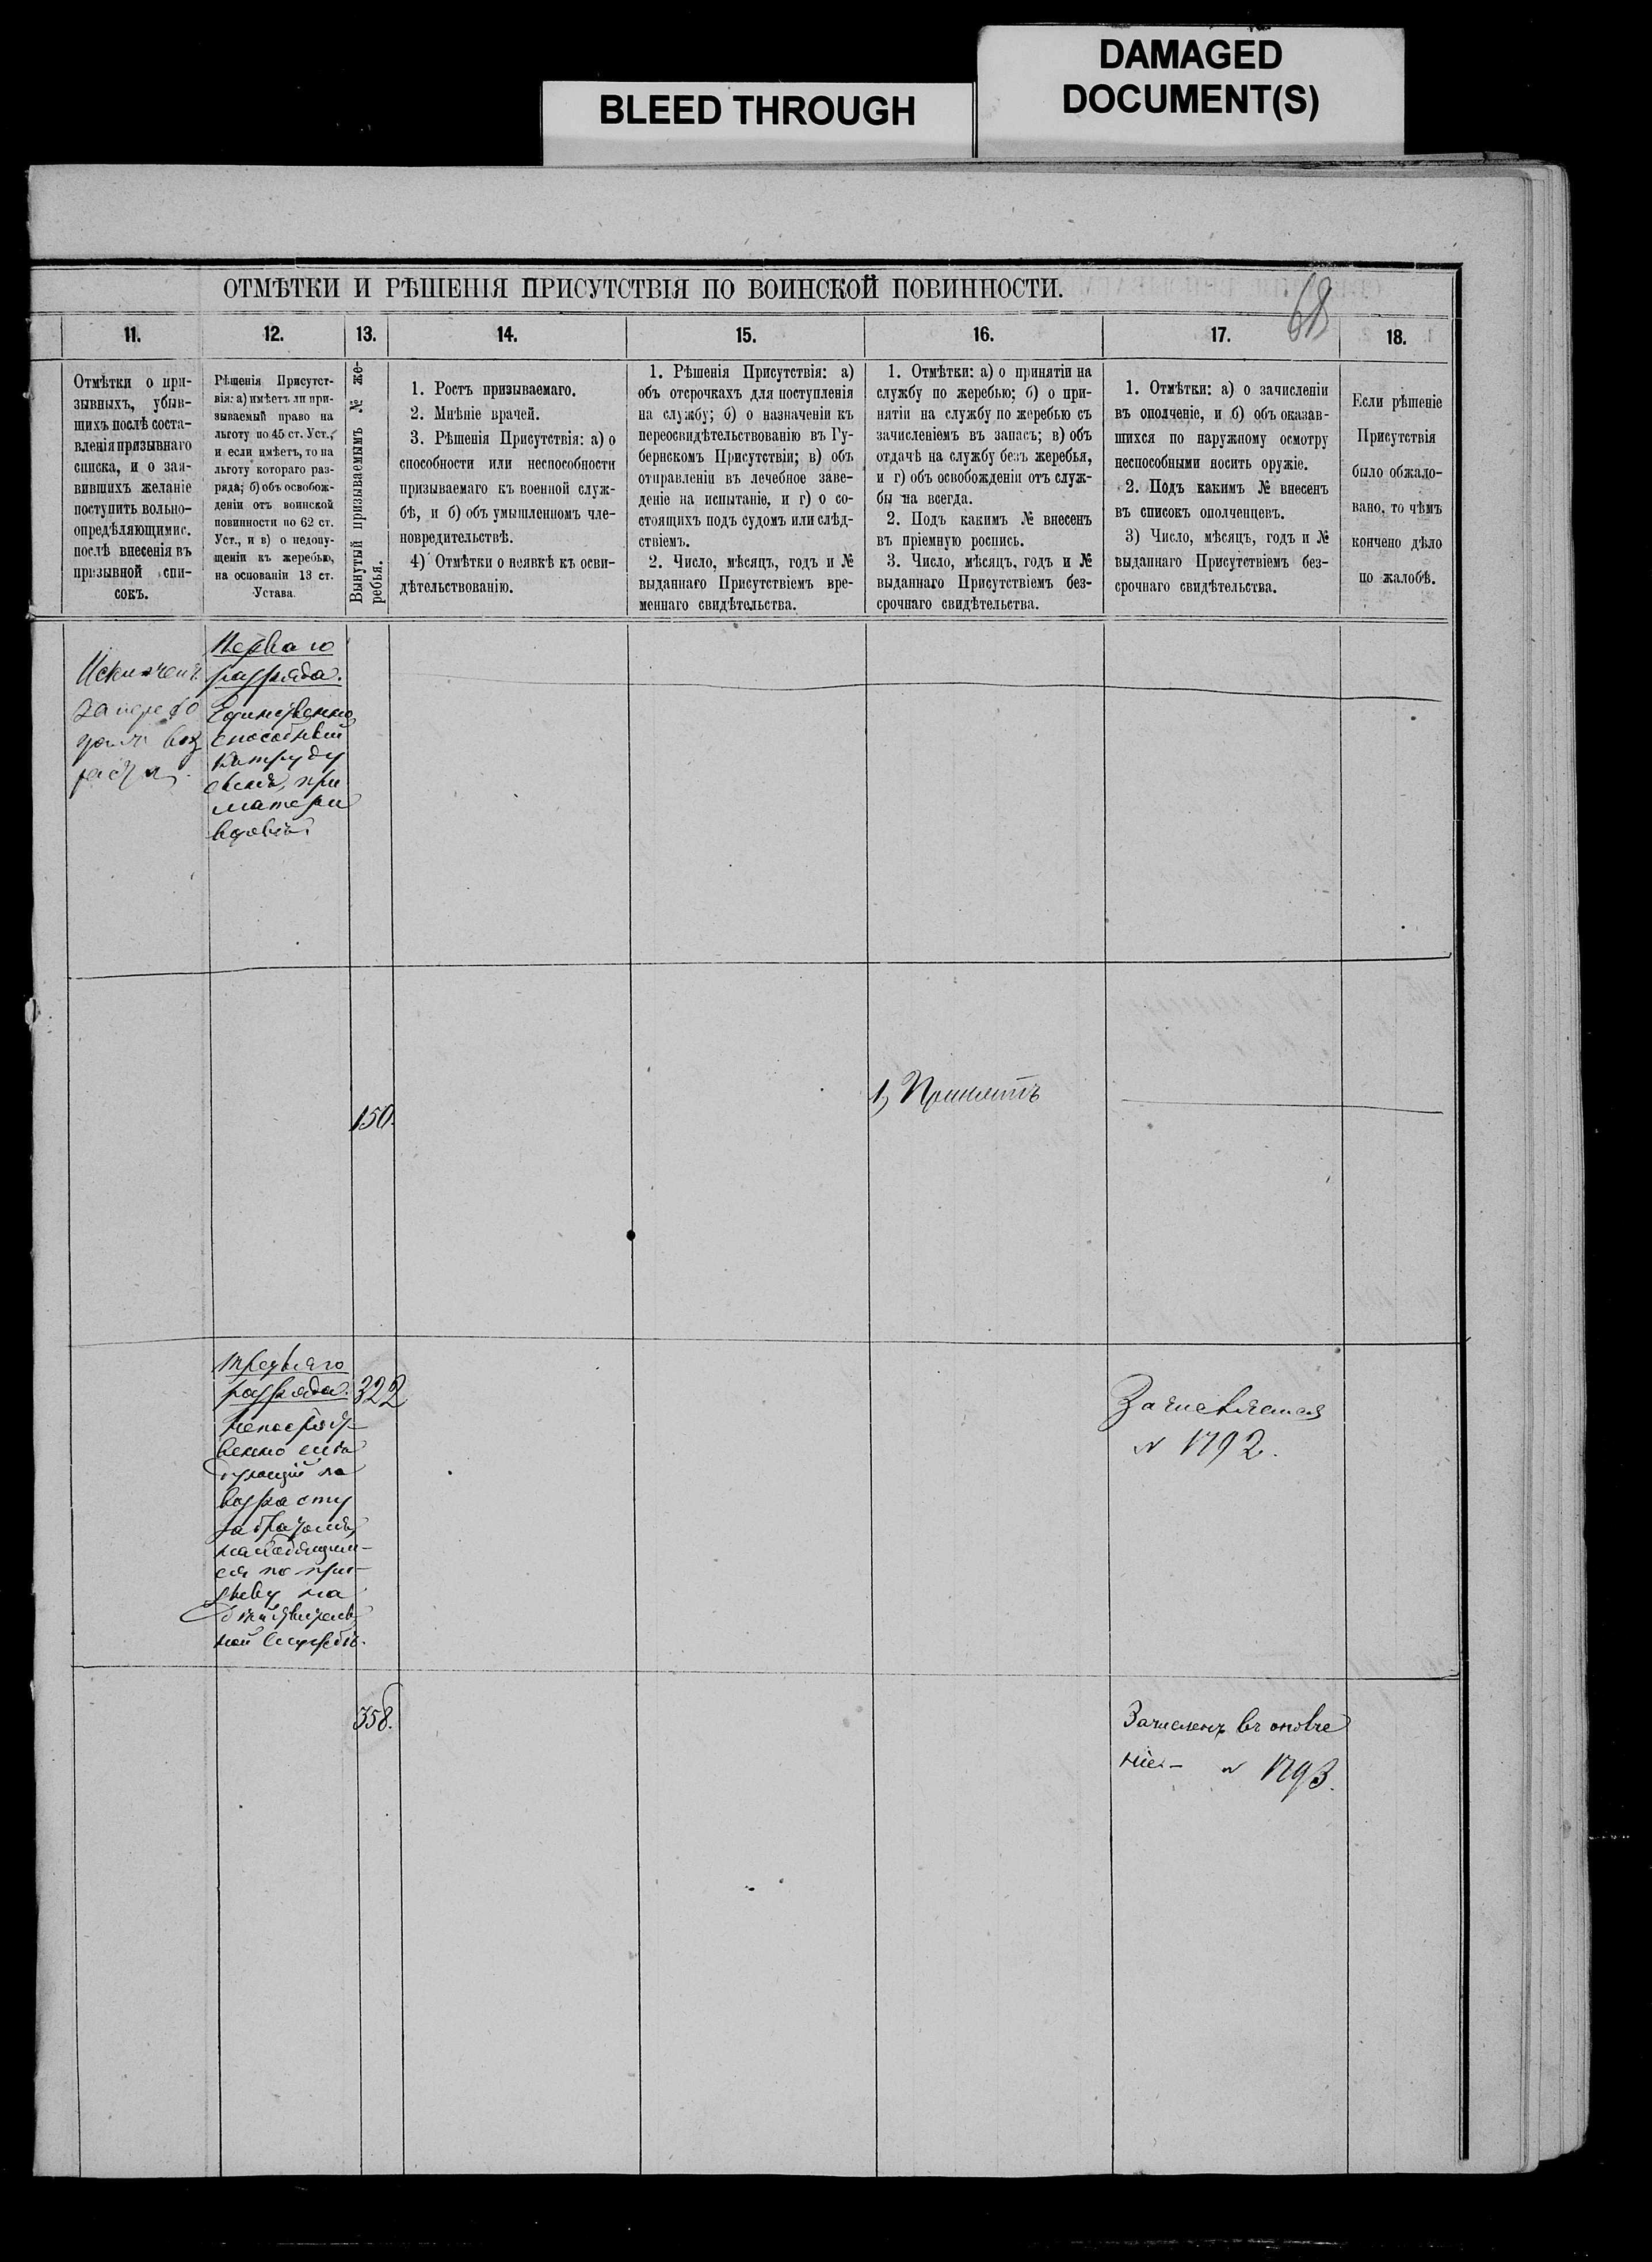 DAMAGED
DOCUMENT(S)
BLEED THROUGH
ОТМѢТКИ И РѢШЕНІЯ ПРИСУТСТВІЯ ПО ВОИНСКОЙ ПОВИННОСТИ.
68
11.
12.
13.
14.
15.
16.
17.
18.
Отмѣтки о при-
зывныхъ, убыв-
шихъ послѣ соста-
вленія призывнаго
списка, и о зая-
вившихъ желаніе
поступить вольно-
опредѣляющимис.
послѣ внесенія въ
призывной спи-
сокъ.
Рѣшенія Присутст-
вія: а) имѣетъ ли при-
зываемый право на
льготу по 45 ст. Уст.,
и если имѣетъ, то на
льготу котораго раз-
ряда; б) объ освобож-
деніи отъ воинской
повинности по 62 ст.
Уст., и в) о недопу-
щеніи къ жеребью,
на основаніи 13 ст.
Устава.
Вынутый призываемымъ № же-
ребья.
1. Ростъ призываемаго.
2. Мнѣніе врачей.
3. Рѣшенія Присутствія: а) о
способности или неспособности
призываемаго къ военной служ-
бѣ, и б) объ умышленномъ чле-
новредительствѣ.
4) Отмѣтки о неявкѣ къ осви-
дѣтельствованію.
1. Рѣшенія Присутствія: а)
объ отсрочкахъ для поступленія
на службу; б) о назначеніи къ
переосвидѣтельствованію въ Гу-
бернскомъ Присутствіи; в) объ
отправленіи въ лечебное заве-
деніе на испытаніе, и г) о со-
стоящихъ подъ судомъ или слѣд-
ствіемъ.
2. Число, мѣсяцъ, годъ и №
выданнаго Присутствіемъ вре-
меннаго свидѣтельства.
1. Отмѣтки: а) о принятіи на
службу по жеребью; б) о при-
нятіи на службу по жеребью съ
зачисленіемъ въ запасъ; в) объ
отдачѣ на службу безъ жеребья,
и г) объ освобожденіи отъ служ-
бы на всегда.
2. Подъ какимъ № внесенъ
въ пріемную роспись.
3. Число, мѣсяцъ, годъ и №
выданнаго Присутствіемъ без-
срочнаго свидѣтельства.
1. Отмѣтки: а) о зачисленіи
въ ополченіе, и б) объ оказав-
шихся по наружному осмотру
неспособными носить оружіе.
2. Подъ какимъ № внесенъ
въ списокъ ополченцевъ.
3) Число, мѣсяцъ, годъ и №
выданнаго Присутствіемъ без-
срочнаго свидѣтельства.
Если рѣшеніе
Присутствія
было обжало-
вано, то чѣмъ
кончено дѣло
по жалобѣ.
Исключенъ
за
воз
раста
Перваго
разряда.
Единственно
способный
къ труду
сынъ, при
матери
вдовѣ.
150.
1, Принятъ
Третьяго
разряда.
непосредст-
венно слѣ
дующій по
возрасту
за братомъ,
находящим-
ся по при-
зыву на
дѣйствитель
ной службѣ.
322
Зачисляется
№ 1792.
358.
Зачисленъ въ ополче
ніе - № 1793.